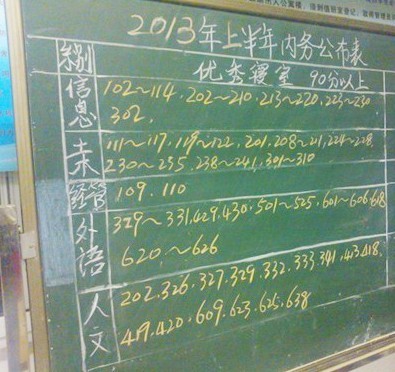 2013年上半年内务公布表
系别 优秀寝室 90分以上
信息 102～114.202～210.213～220.223～230
302.
土木 111～117.119～122.201.208～21,224～228
230～235.238～241.301～310
经管 109.110
外语 329～331.429.430.501～525.601～606.618
620.～626
人文 202.326.327.329.332.333.341.413.418.
419.420.609.623.625.638